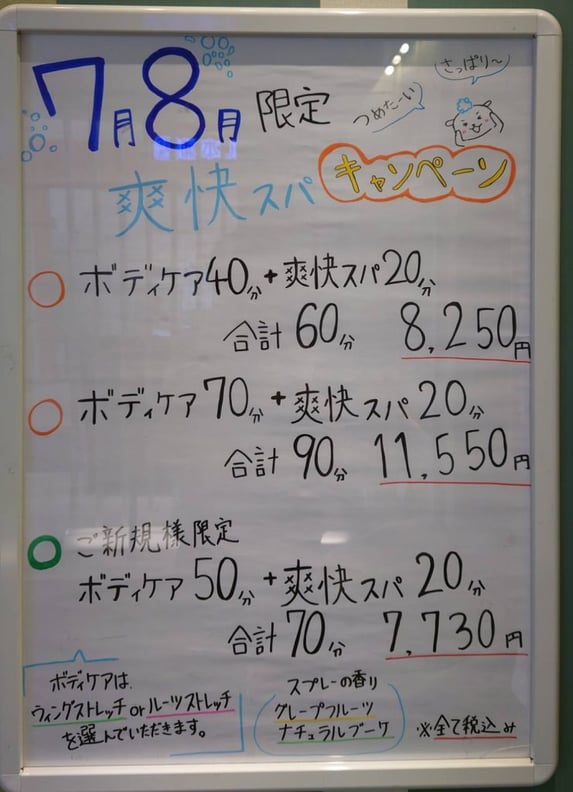 7月8月限定
さっぱり〜
つめたーい
爽快スパ キャンペーン
ボディケア40分+爽快スパ20分
合計60分 8,250円
ボディケア70分+爽快スパ20分
合計90分 11,550円
ご新規様限定
ボディケア50分+爽快スパ20分
合計70分 7,730円
ボディケアは
ウィングストレッチorルーツストレッチ
を選んでいただきます。
スプレーの香り
グレープフルーツ
ナチュラルブーケ
※全て税込み